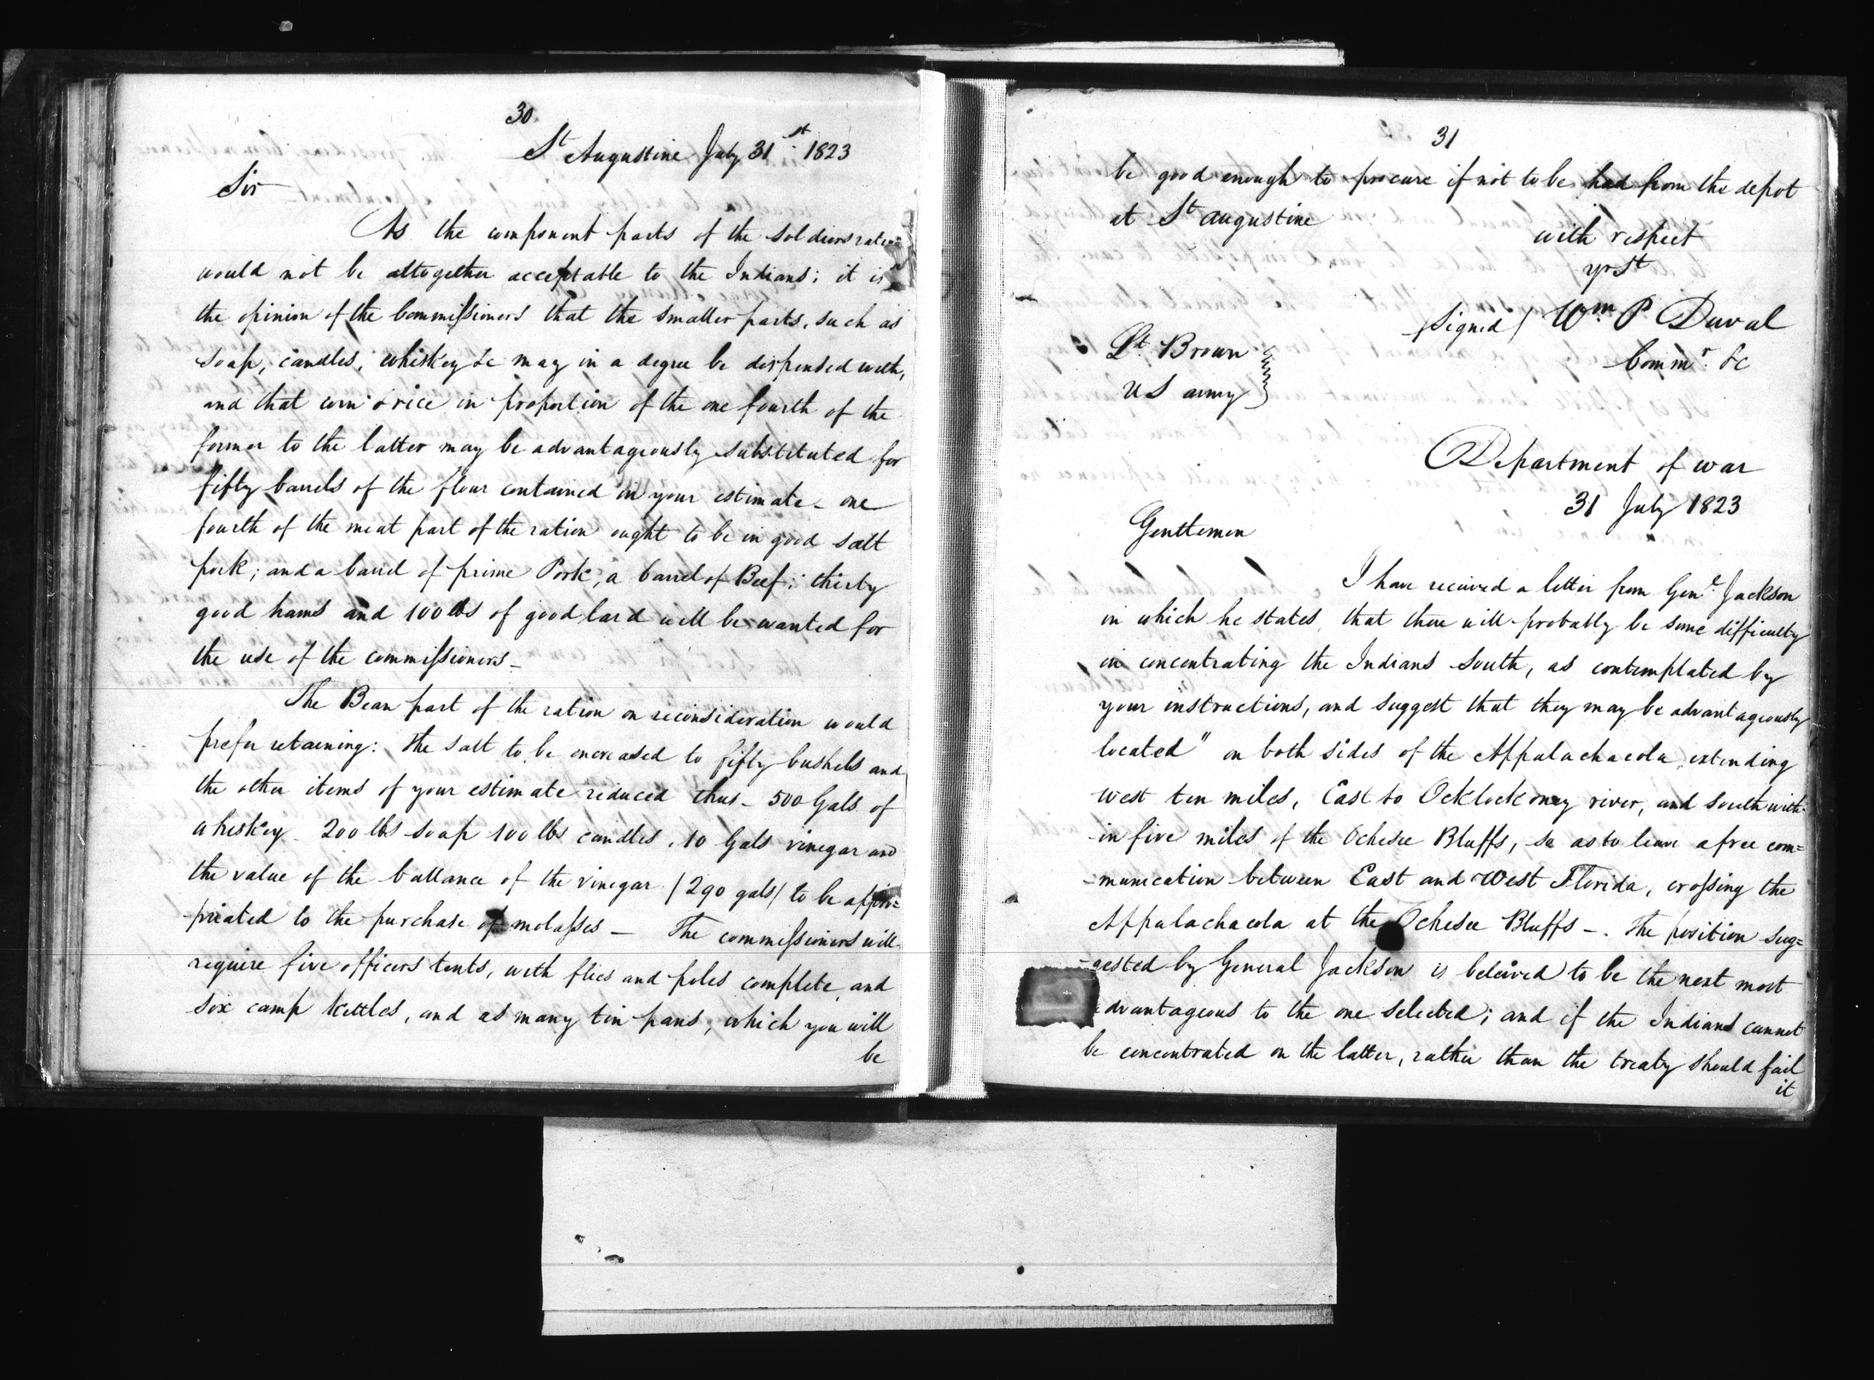 30.
St Augustine July 31st 1823
Sir
As the component parts of the soldiers ration
would not be altogether acceptable to the Indians; it is
the opinion of the Commissioners that the smaller parts, such as
soap, candles, whiskey &c may in a degree be dispensed with,
and that corn & rice in proportion of the one fourth of the
former to the latter may be advantageously substituted for
fifty barrels of the flour contained in your estimate - one
fourth of the meat part of the ration ought to be in good salt
pork; and a barrel of prime Pork, a barrel of Beef; thirty
good hams and 100 lbs of good lard will be wanted for
the use of the commissioners -
The Bean part of the ration on reconsideration would
prefer retaining: the salt to be encreased to fifty bushels and
the other items of your estimate reduced thus - 500 Gals of
whiskey - 200 lbs soap 100 lbs candles, 10 Gals vinegar and
the value of the ballance of the vinegar /290 gals/ to be appro=
priated to the purchase of molasses - The commissioners will
require five officers tents, with flies and poles complete and
six camp kettles, and as many tin pans, which you will
be
31
be good enough to procure if not to be had from the depot
at St augustine
with respect
yr St
/Signed/ Wm P Duval
Commr. &c
Lt. Brown
US army
Department of war
31 July 1823
Gentlemen
I have received a letter from Genl. Jackson
in which he states, that there will probably be some difficulty
in concentrating the Indians South, as contemplated by
your instructions, and suggest that they may be advantageously
located" on both sides of the Appalachacola, extending
west ten miles, East to Ocklockoney river, and south with-
in five miles of the Ochesee Bluffs, so as to leave a free com=
-munication between East and West Florida, crossing the
Appalachacola at the Ochesee Bluffs -. The position sug=
-gested by General Jackson is beleived to be the next most
advantageous to the one selected; and if the Indians cannot
be concentrated on the latter, rather than the treaty should fail
it